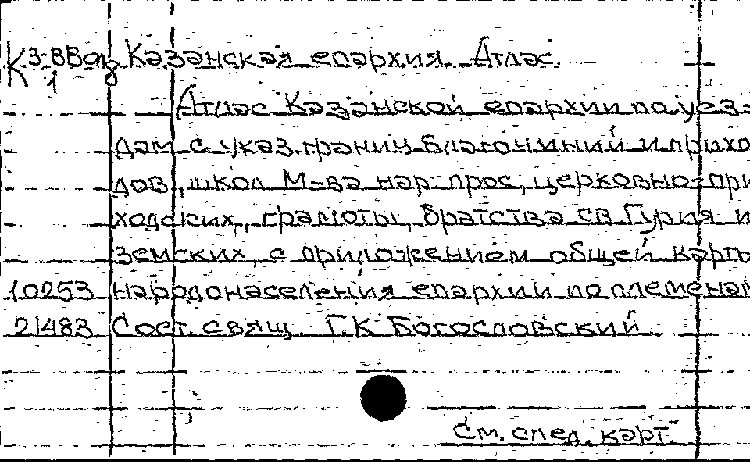 К 3-8 Казанская епархия. Атлас.
1
Атлас Казанской епархии по уез-
дам с указ. границ благочиний и прихо-
дов, школ М-ва нар. прос., церковно-при-
ходских, грамоты, братства св. Гурия и
земских, с приложением общей карты
10253 народонаселения епархии по племенам
21483 Сост. свящ. Г.К Богословский.
См. след. карт.